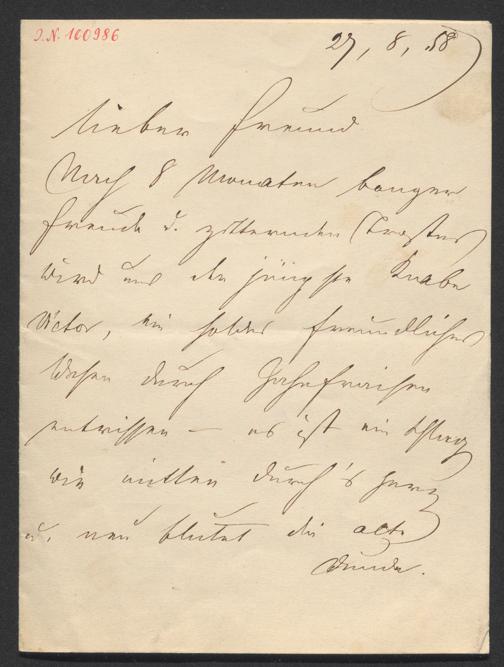 J. N. 160986
27, 8, 58
Lieber Freund
Nach 8 Monaten banger
Freude u. zitternden Trostes
wird uns der jüngste Knabe
Victor, ein holdes freundliches
Wesen durch Zahnfraisen
entrissen — es ist ein Schlag
wie mitten durch's Herz
u. neu blutet die alte
Wunde.